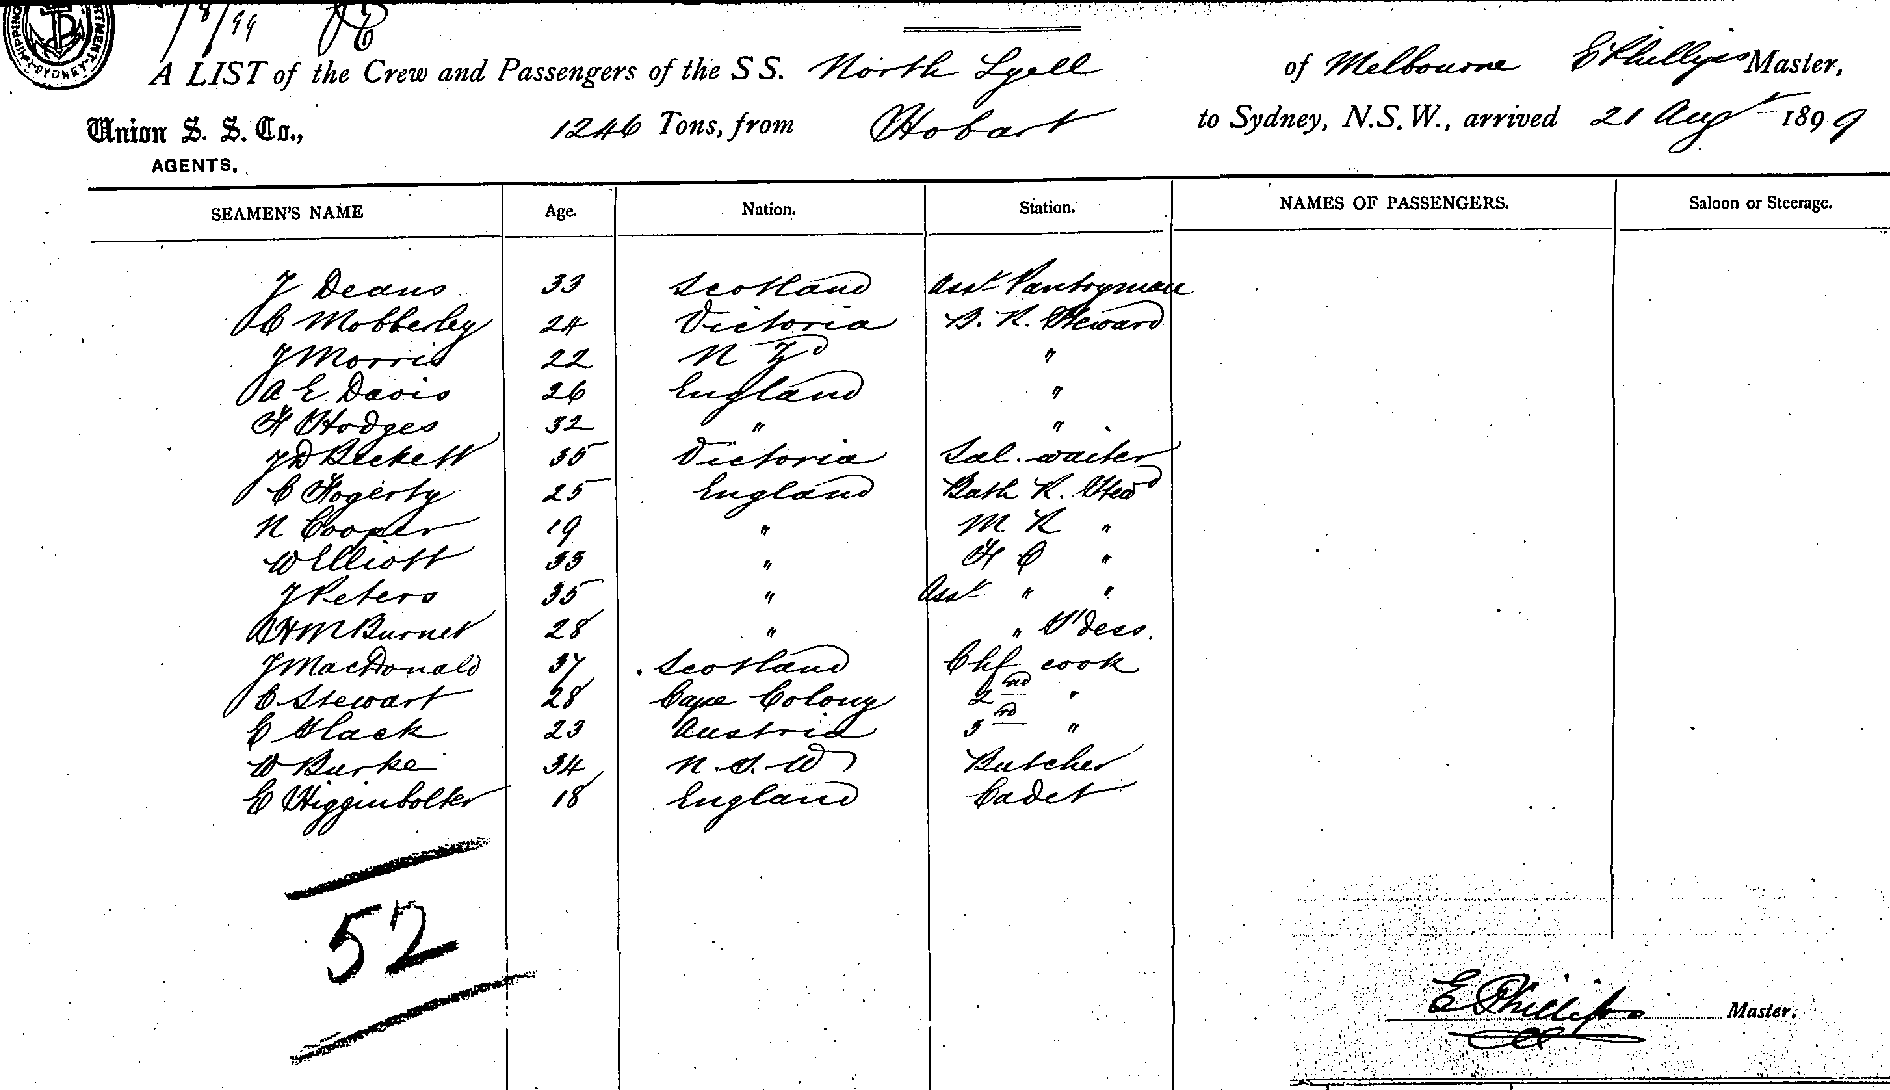 7/8/99
A LIST of the Crew and Passengers of the S S. North Lyell of Melbourne E Phillips Master,
Union S. S. Co., 1246 Tons, from Hobart to Sydney, N.S.W., arrived 21 Augt 1899
AGENTS,
SEAMEN'S NAME Age. Nation. Station. NAMES OF PASSENGERS. Saloon or Steerage.
J Deans 33 Scotland Asst Pantryman
C Mobberley 24 Victoria B. R. Steward
J Morris 22 N Zd "
A E Davis 26 England "
H Hodges 32 " "
J D Beckett 35 Victoria Sal. waiter
C Fogerty 25 England Bath R. Stewd
N Cooper 19 " M R "
W Elliott 33 " F C "
J Peters 35 " Asst " "
H M Burnet 28 " " S'dess.
J MacDonald 37 Scotland Chf cook
C Stewart 28 Cape Colony 2nd "
C Slack 23 Austria 3rd "
W Burke 34 N. S. W Butcher
C Higginbolter 18 England Cadet
52
E Phillips Master.